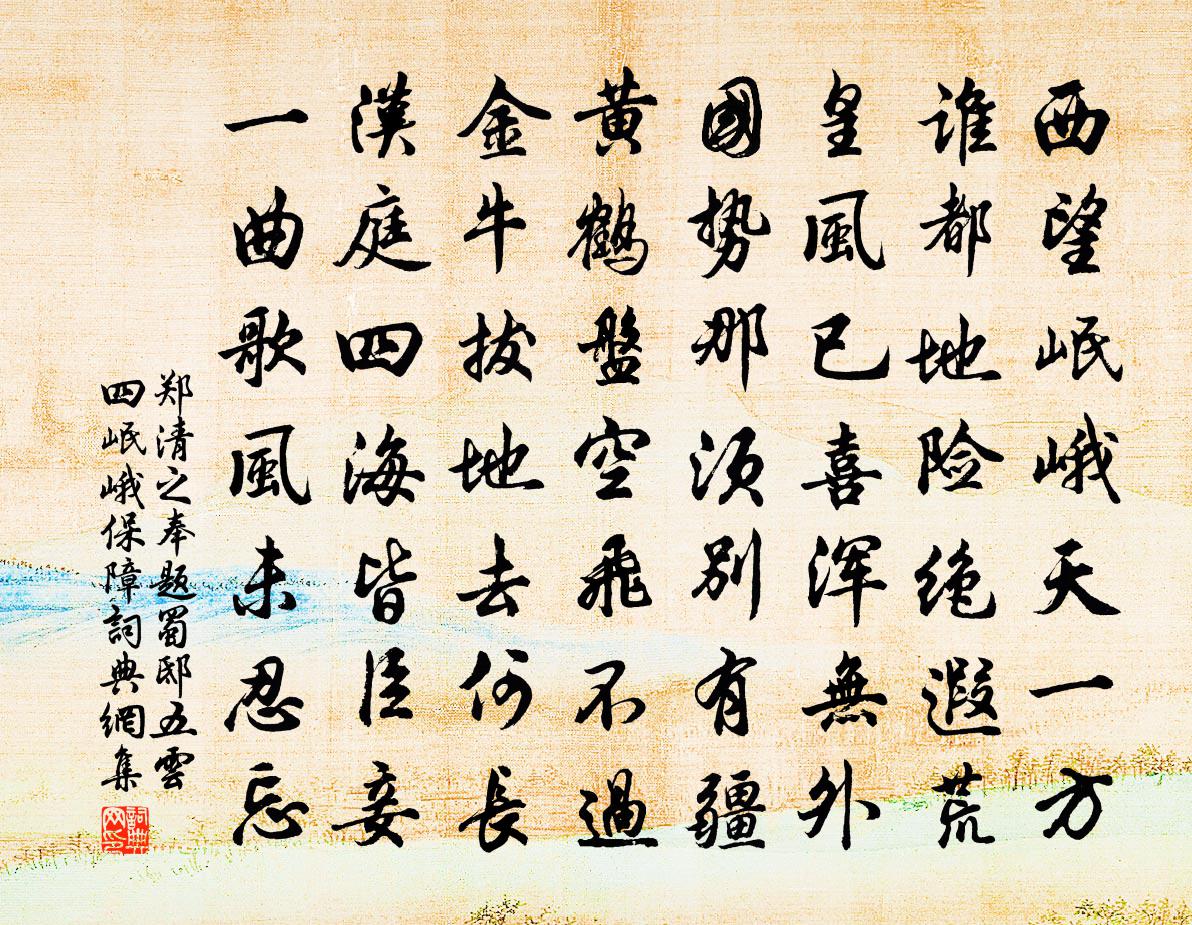 西望岷峨天一方
谁都地险绝遐荒
皇風已喜浑無外
國势那须别有疆
黄鹤盤空飛不過
金牛拔地去何長
漢庭四海皆臣妾
一曲歌風未忍忘
郑清之奉题蜀邸五雲
四岷峨保障詞典網集